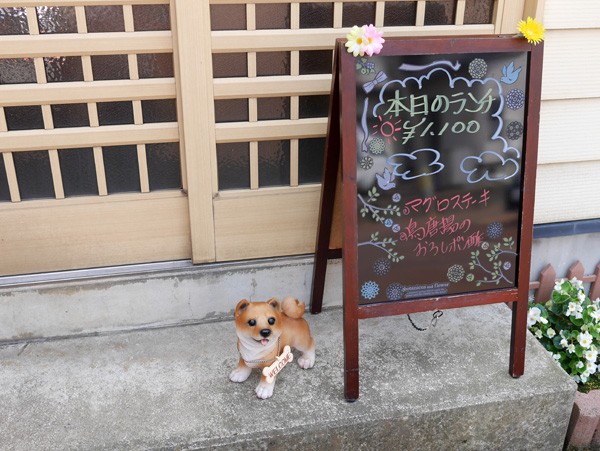 本日のランチ
¥1.100
マグロステーキ
鳥唐揚の
おろしポン酢
WELCOME